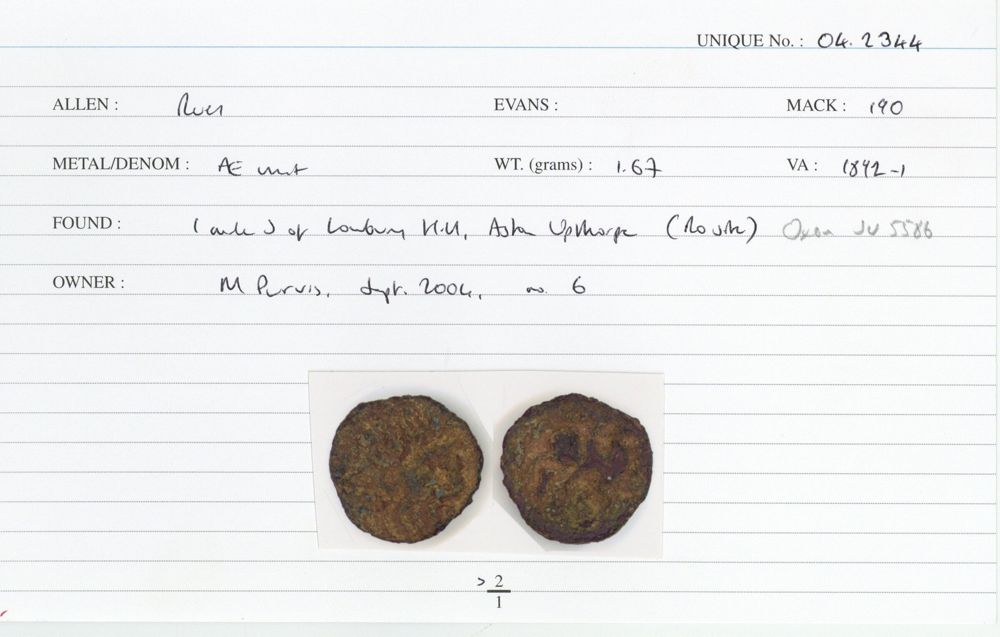 UNIQUE No. : 04. 2344
ALLEN : Rues EVANS : MACK : 190
METAL/DENOM : Æ unit WT. (grams) : 1.67 VA : 1892-1
FOUND : 1 mile S of Lowbury Hill, Aston Upthorpe Oxon SU 5586
OWNER : M Purvis, Sept. 2004, no. 6
> 2
1